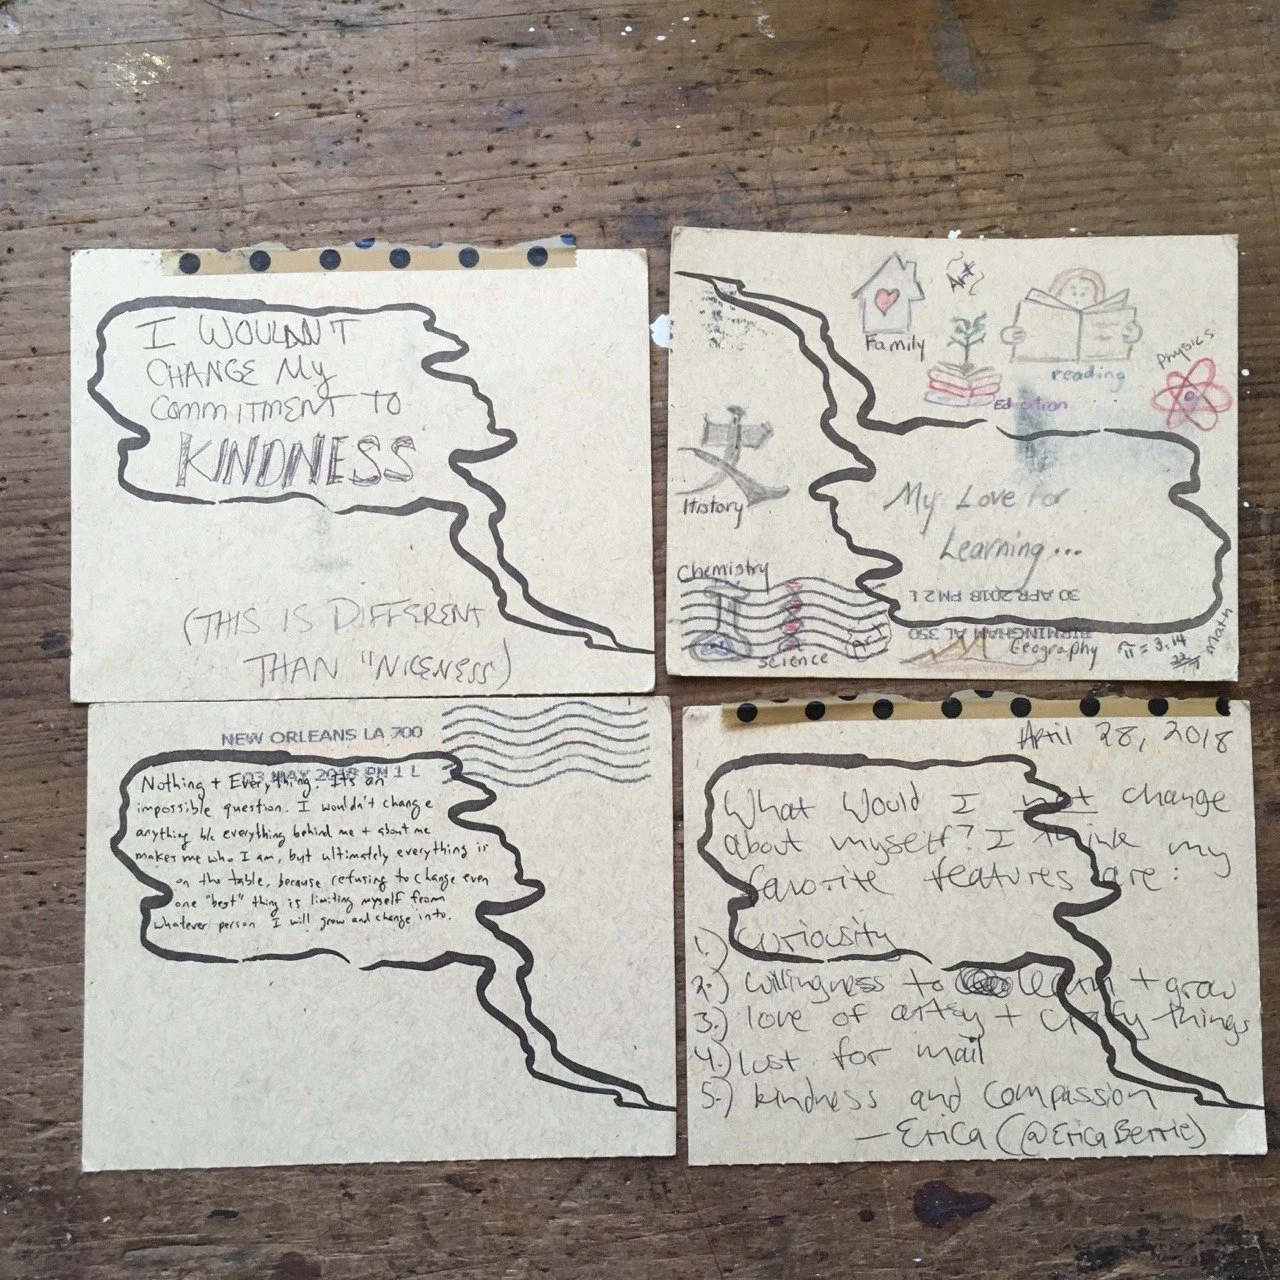 I WOULDN'T
CHANGE My
COMMITMENT TO
KINDNESS
(THIS IS DIFFERENT
THAN "NICENESS)
Art
Family
reading
Education
Physics
History
My Love for
Learning...
Chemistry
Science
Art
Geography
π = 3.14
Math
30 APR 2018 PM 2 L
BIRMINGHAM AL 350
NEW ORLEANS LA 700
03 MAY 2018 PM 1 L
Nothing + Everything. It's an
impossible question. I wouldn't change
anything b/c everything behind me + about me
makes me who I am, but ultimately everything is
on the table, because refusing to change even
one "best" thing is limiting myself from
whatever person I will grow and change into.
April 28, 2018
What would I not change
about myself? I think my
favorite features are:
1.) curiosity
2.) willingness to learn + grow
3.) love of artsy + crafty things
4.) lust for mail
5.) kindness and compassion
- Erica (@EricaBerrie)